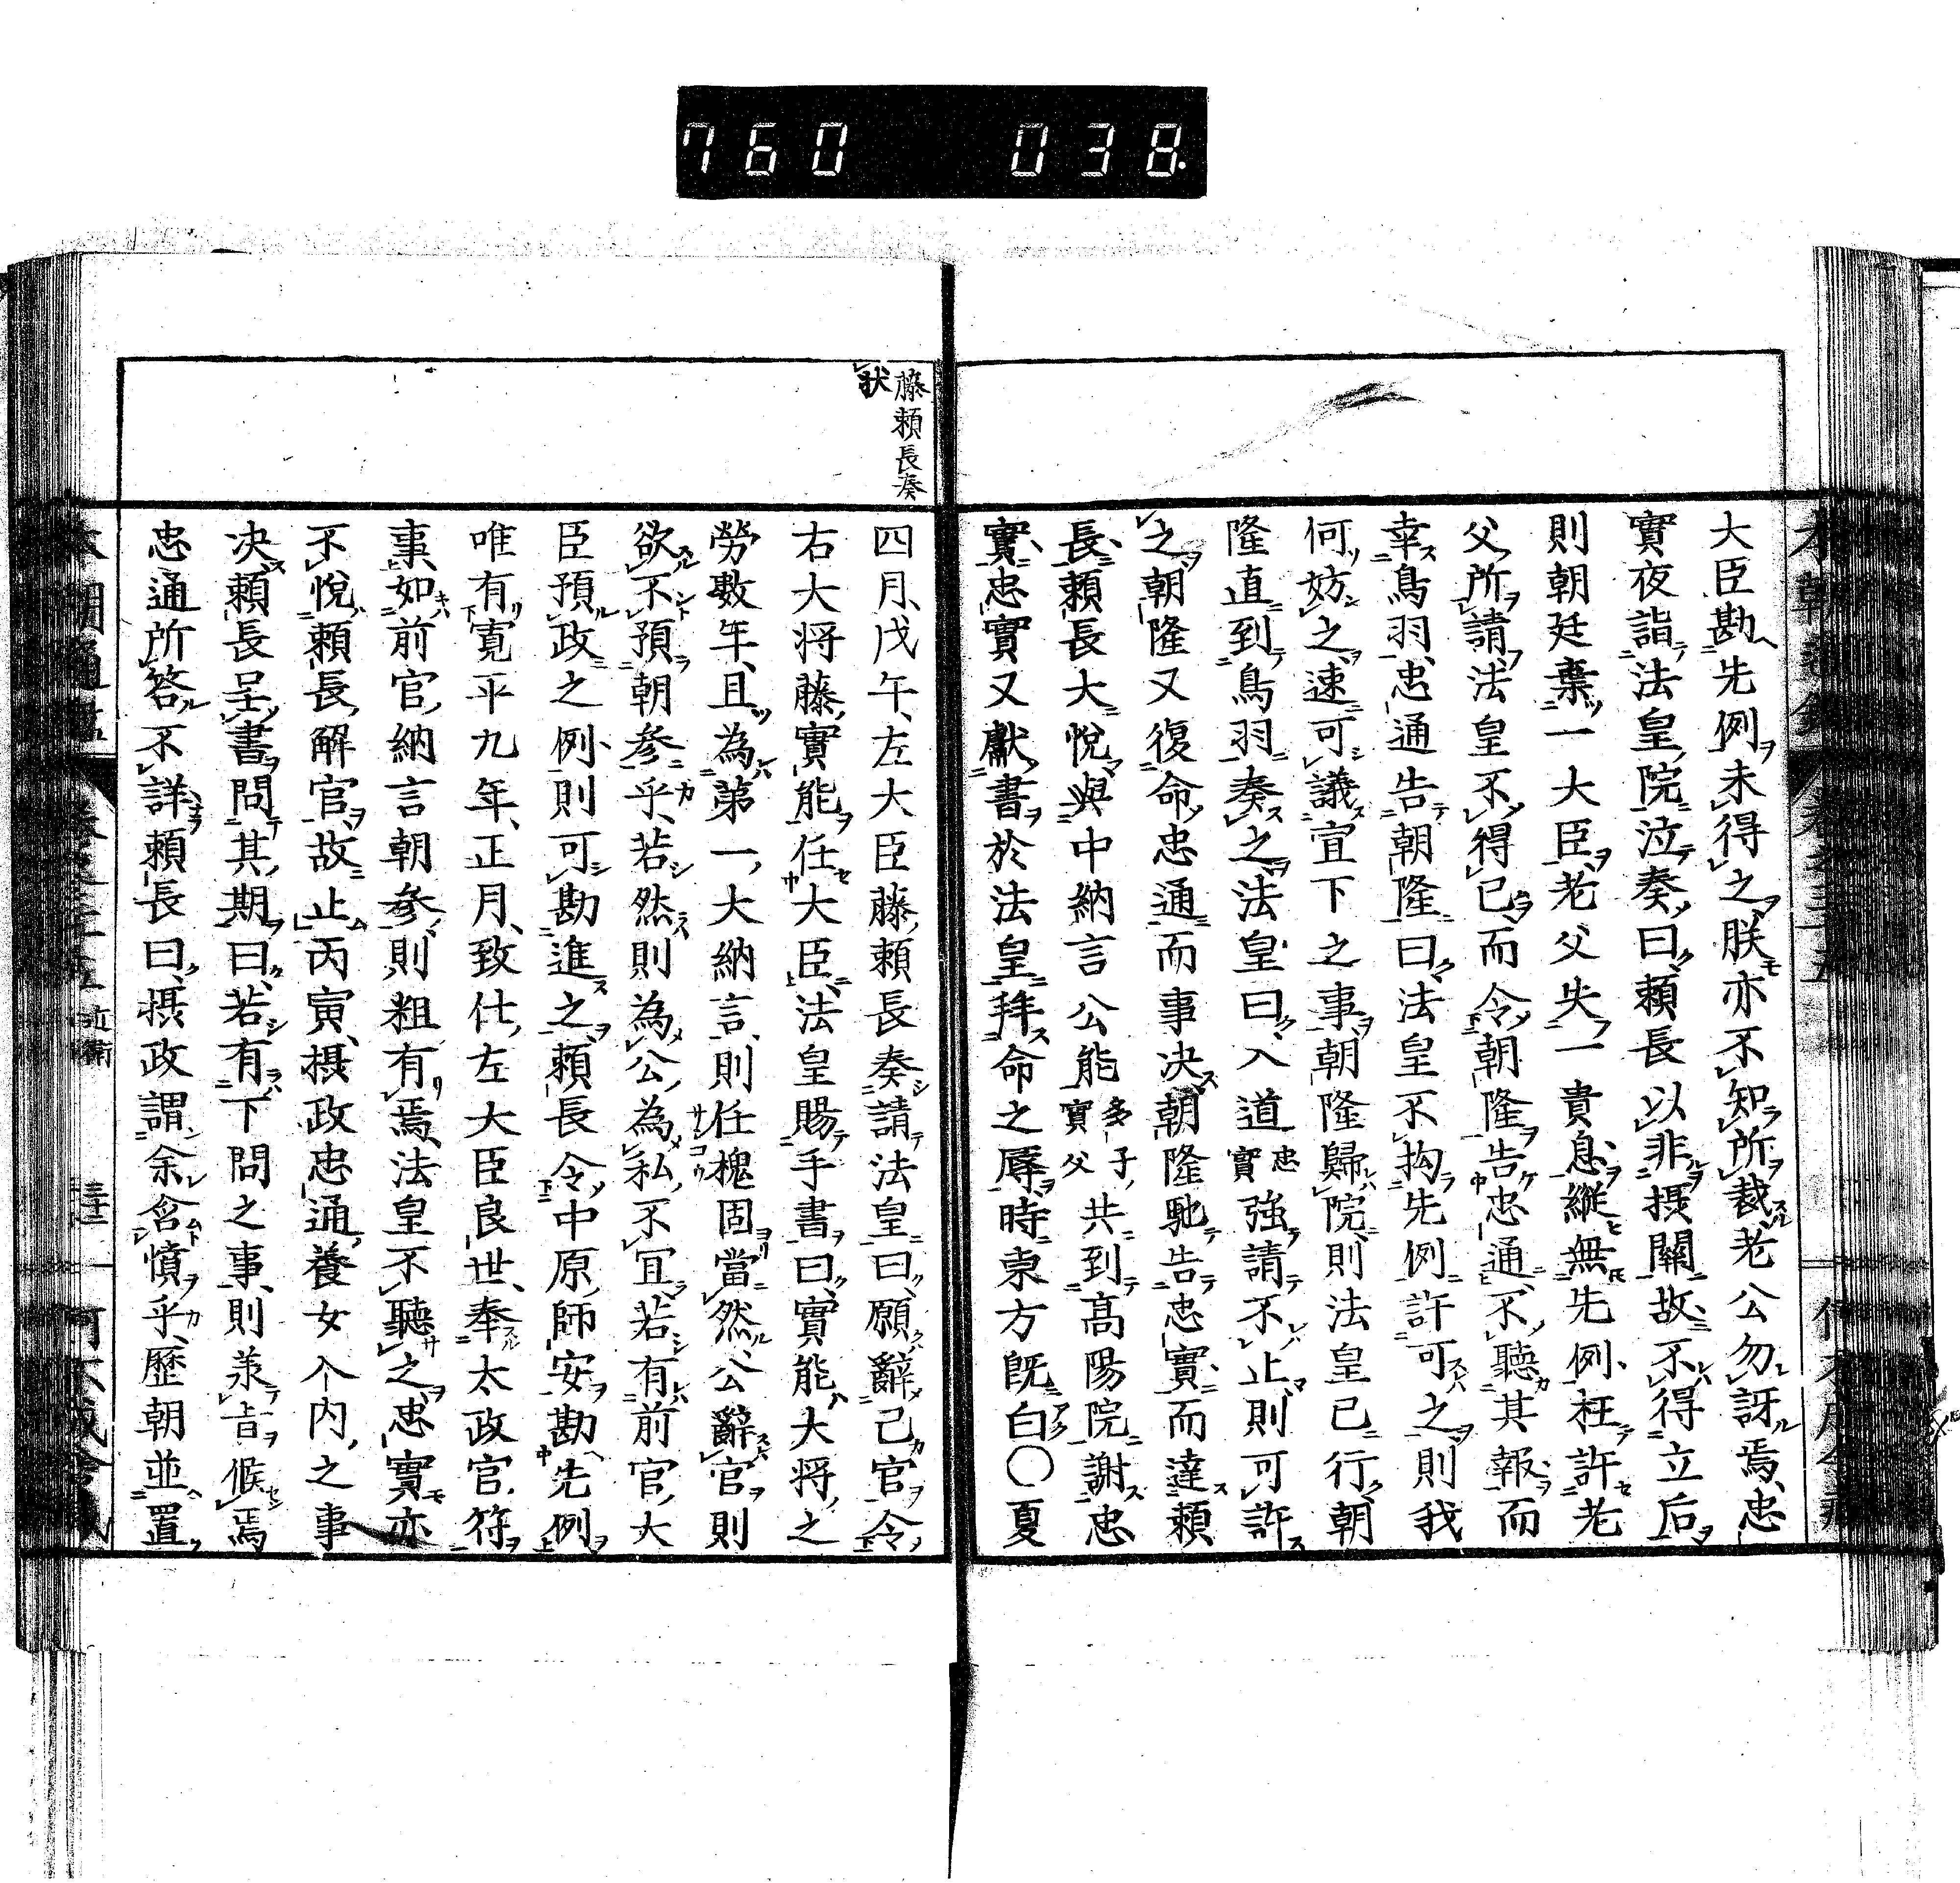 760 038
大臣勘先例未得之朕亦不知所裁老公勿訝焉忠
實夜詣法皇院泣奏曰賴長以非摂關故不得立后
則朝廷棄一大臣老父失一貴息縱無先例枉許老
父所請法皇不得已而令朝隆告忠通不聽其報而
幸鳥羽忠通告朝隆曰法皇不拘先例許可之則我
何妨之速可議宣下之事朝隆歸院則法皇已行朝
隆直到鳥羽奏之法皇曰入道忠實強請不止則可許
之朝隆又復命忠通而事决朝隆馳告忠實而達賴
長賴長大悅與中納言公能多子實父共到高陽院謝忠
實忠實又獻書於法皇拜命之辱時東方既白〇夏
藤賴長奏
狀
四月戊午左大臣藤賴長奏請法皇曰願辭己官令
右大将藤實能任大臣法皇賜手書曰實能大将之
勞數年且為第一大納言則任槐固當然公辭官則
欲不預朝参乎若然則為公為私不宜若有前官大
臣預政之例則可勘進之賴長令中原師安勘先例
唯有寛平九年正月致仕左大臣良世奉太政官符
事如前官納言朝参則粗有焉法皇不聽之忠實亦
不悅賴長解官故止丙寅摂政忠通養女入内之事
决賴長呈書問其期曰若有下問之事則羕旨候焉
忠通所答不詳賴長曰摂政謂余含憤乎歷朝並置